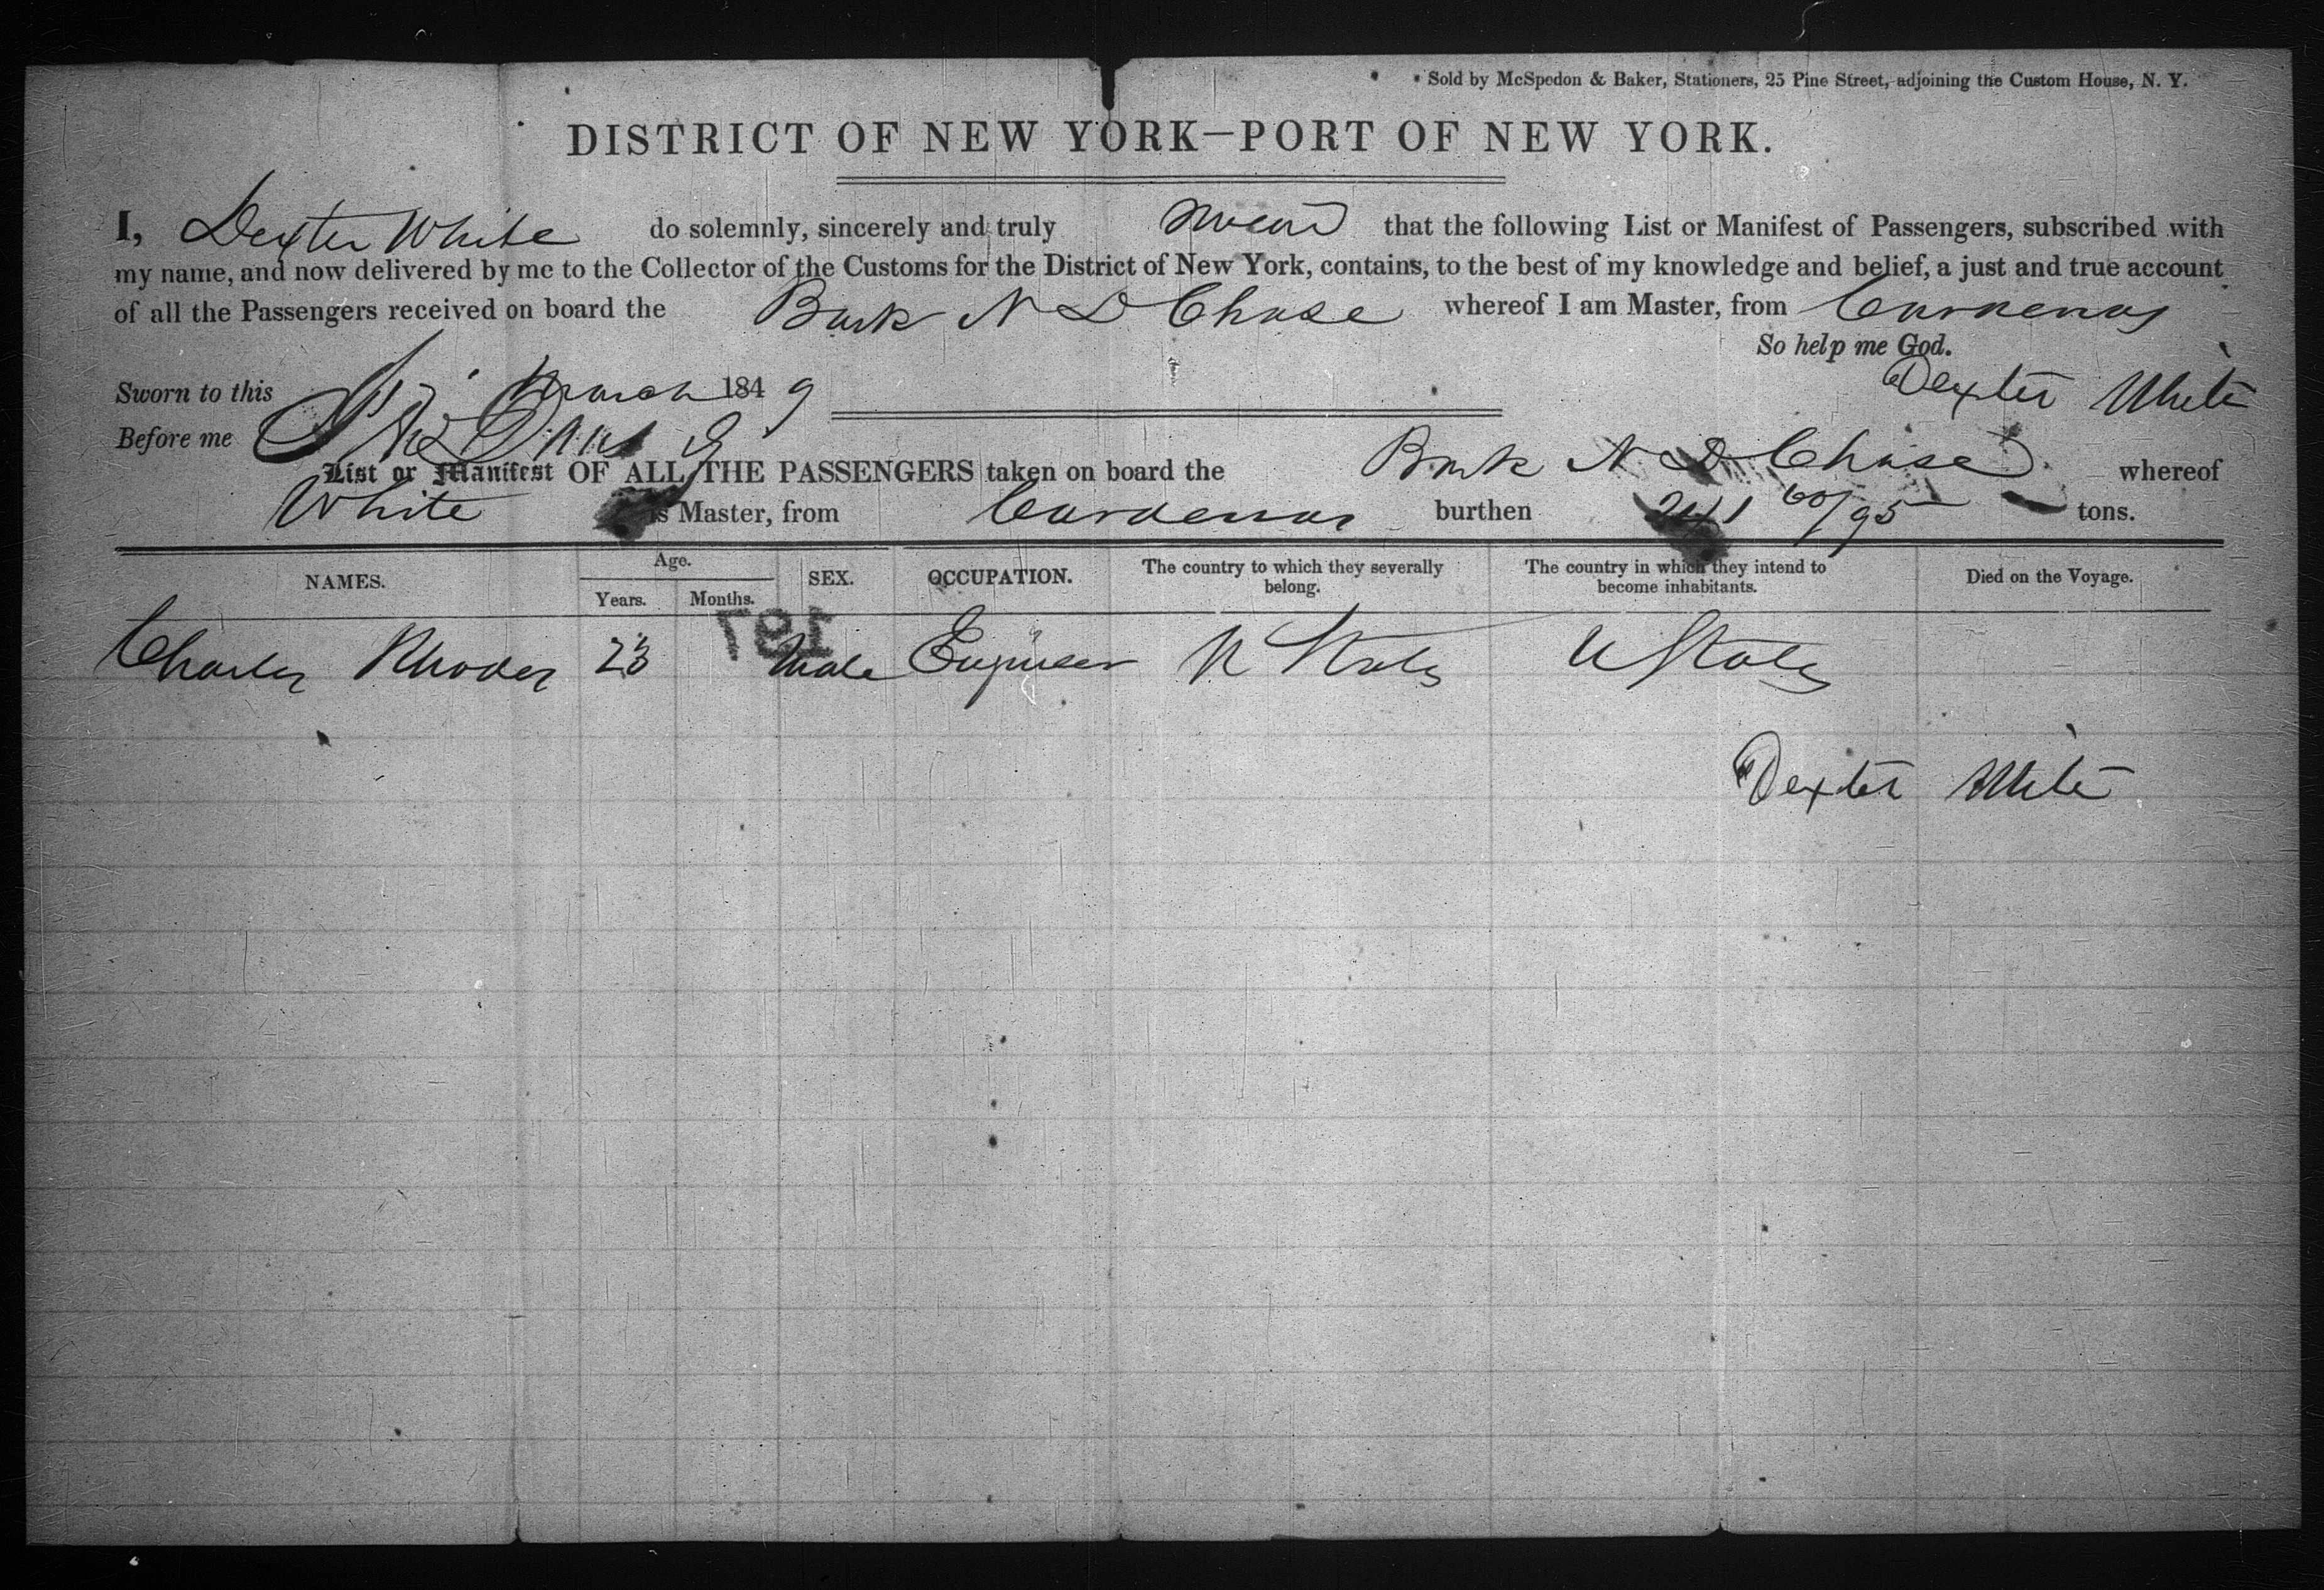 Sold by McSpedon & Baker, Stationers, 25 Pine Street, adjoining the Custom House, N. Y.
DISTRICT OF NEW YORK—PORT OF NEW YORK.
I, Dexter White do solemnly, sincerely and truly swear that the following List or Manifest of Passengers, subscribed with
my name, and now delivered by me to the Collector of the Customs for the District of New York, contains, to the best of my knowledge and belief, a just and true account
of all the Passengers received on board the Bark N D Chase whereof I am Master, from Cardenas
So help me God.
Sworn to this March 1849 Dexter White
Before me
List or Manifest OF ALL THE PASSENGERS taken on board the Bark N D Chase whereof
White is Master, from Cardenas burthen 241 60/95 tons.
NAMES. Age. Years. Months. SEX. OCCUPATION. The country to which they severally belong. The country in which they intend to become inhabitants. Died on the Voyage.
197
Charles Rhodes 23 Male Engineer U States U States
Dexter White